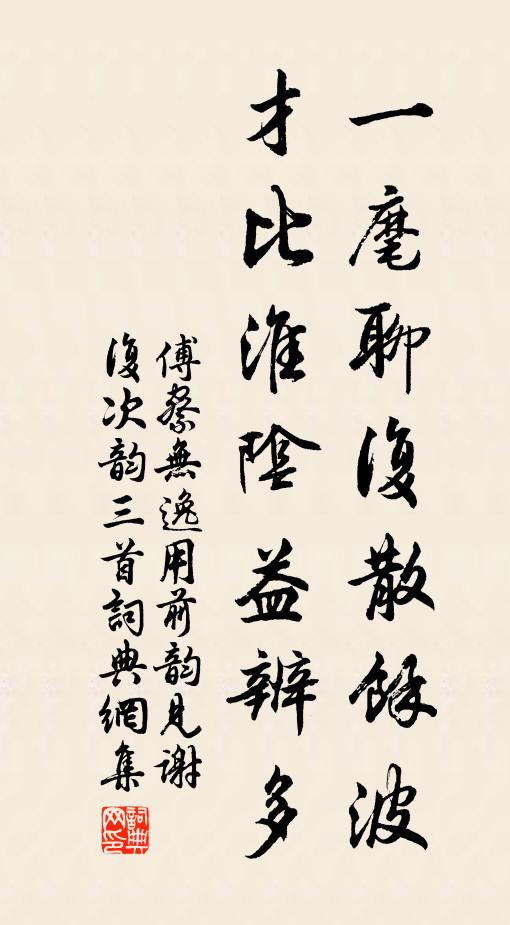 一麾聊復散餘波
才比淮陰益辨多
傅察無逸用前韵見謝
復次韵三首詞典網集
詞典網印